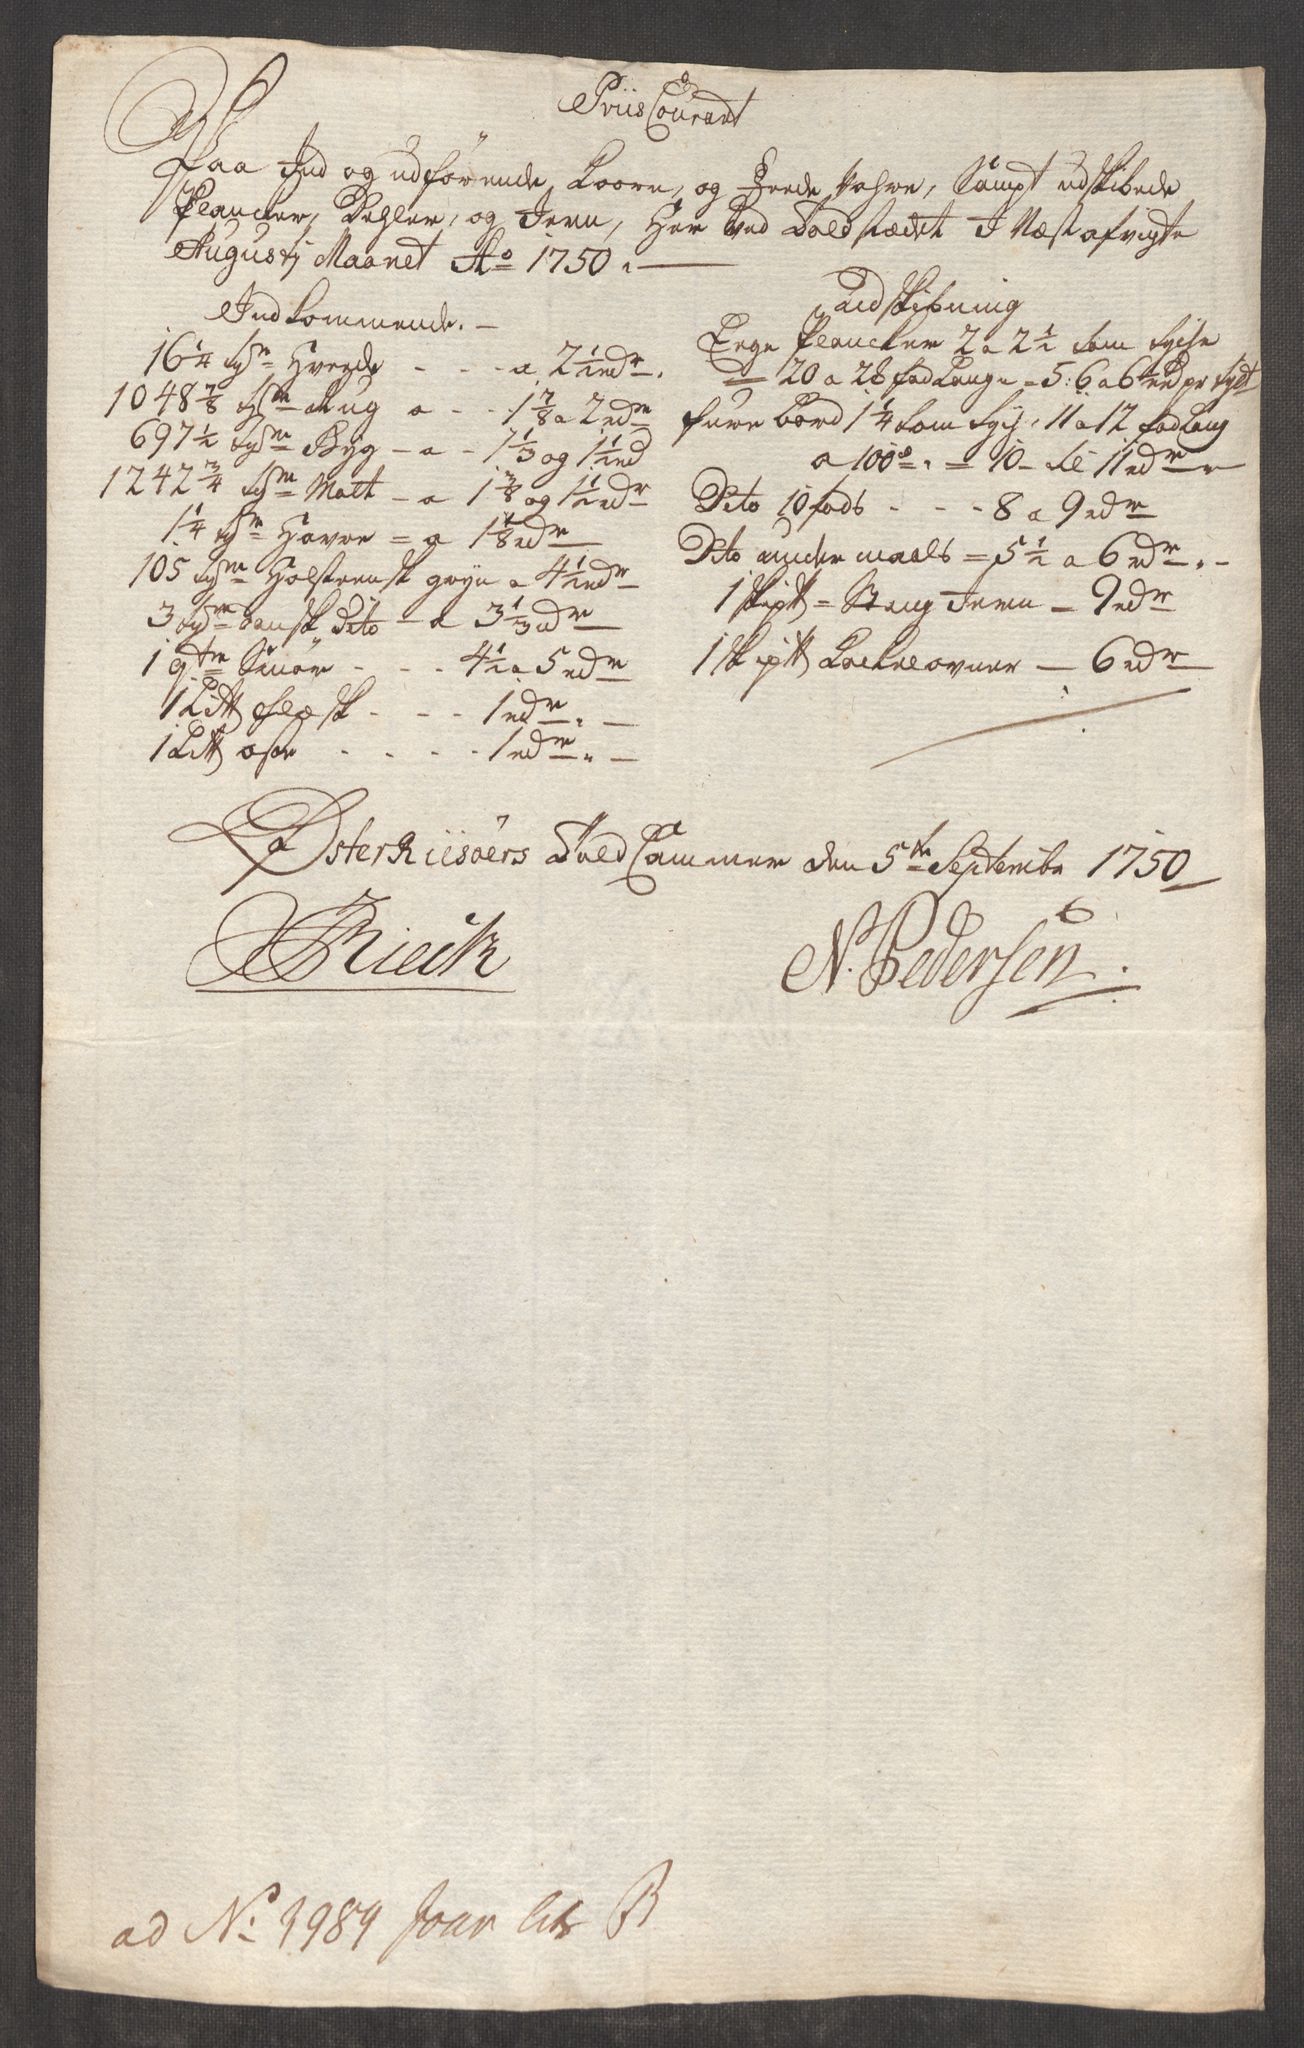 Priis Courant
Paa Ind og udførende Koorn, og Feede Vahre, Sampt udskibede
Plancker, Dehler, og Jern, Her ved Toldstædet I Næst afvigte
Augustj Maanet Ao 1750.
Indkommende.
16 1/4 tdr Hvede - - - a 2 1/2 rdr.
1048 7/8 tdr Rug a - - 1 7/8 a 2 rdr
697 1/2 tdr Byg - a - 1 1/3 og 1 1/2 rd
1242 3/4 tdr Malt - a 1 3/8 og 1 1/2 rdr
1 1/4 tdr Havre = a 1 1/8 rdr
105 tdr Holsteensk gryn a 4 1/2 rdr
3 tdr dansk Dito - a 3 1/3 rdr
1 qtr Smør - - - 4 1/2 a 5 rdr
1 L℔ Flæsk - - - 1 rdr.
1 L℔ Ost - - - - 1 rdr.
Udskibning
Eege Plancker 2 a 2 1/2 tom tycke
= 20 a 28 fod Lange = 5: 6 a 6 1/2 rd pr tylt
furre bord 1 1/4 tom tyck, 11 a 12 fod Lang
a 100de = 10 til 11 rdr
Dito 10 fods - - - 8 a 9 rdr
Dito under maals = 5 1/2 a 6 rdr.
1 Skip℔ = Stang Jern - 9 rdr
1 Skip℔ Kackelovner - 6 rdr
ØsterRiisøers Told Cammer den 5te Septembr 1750
Rieck
N. Pedersen.
ad No: 1989 Jour Litr B